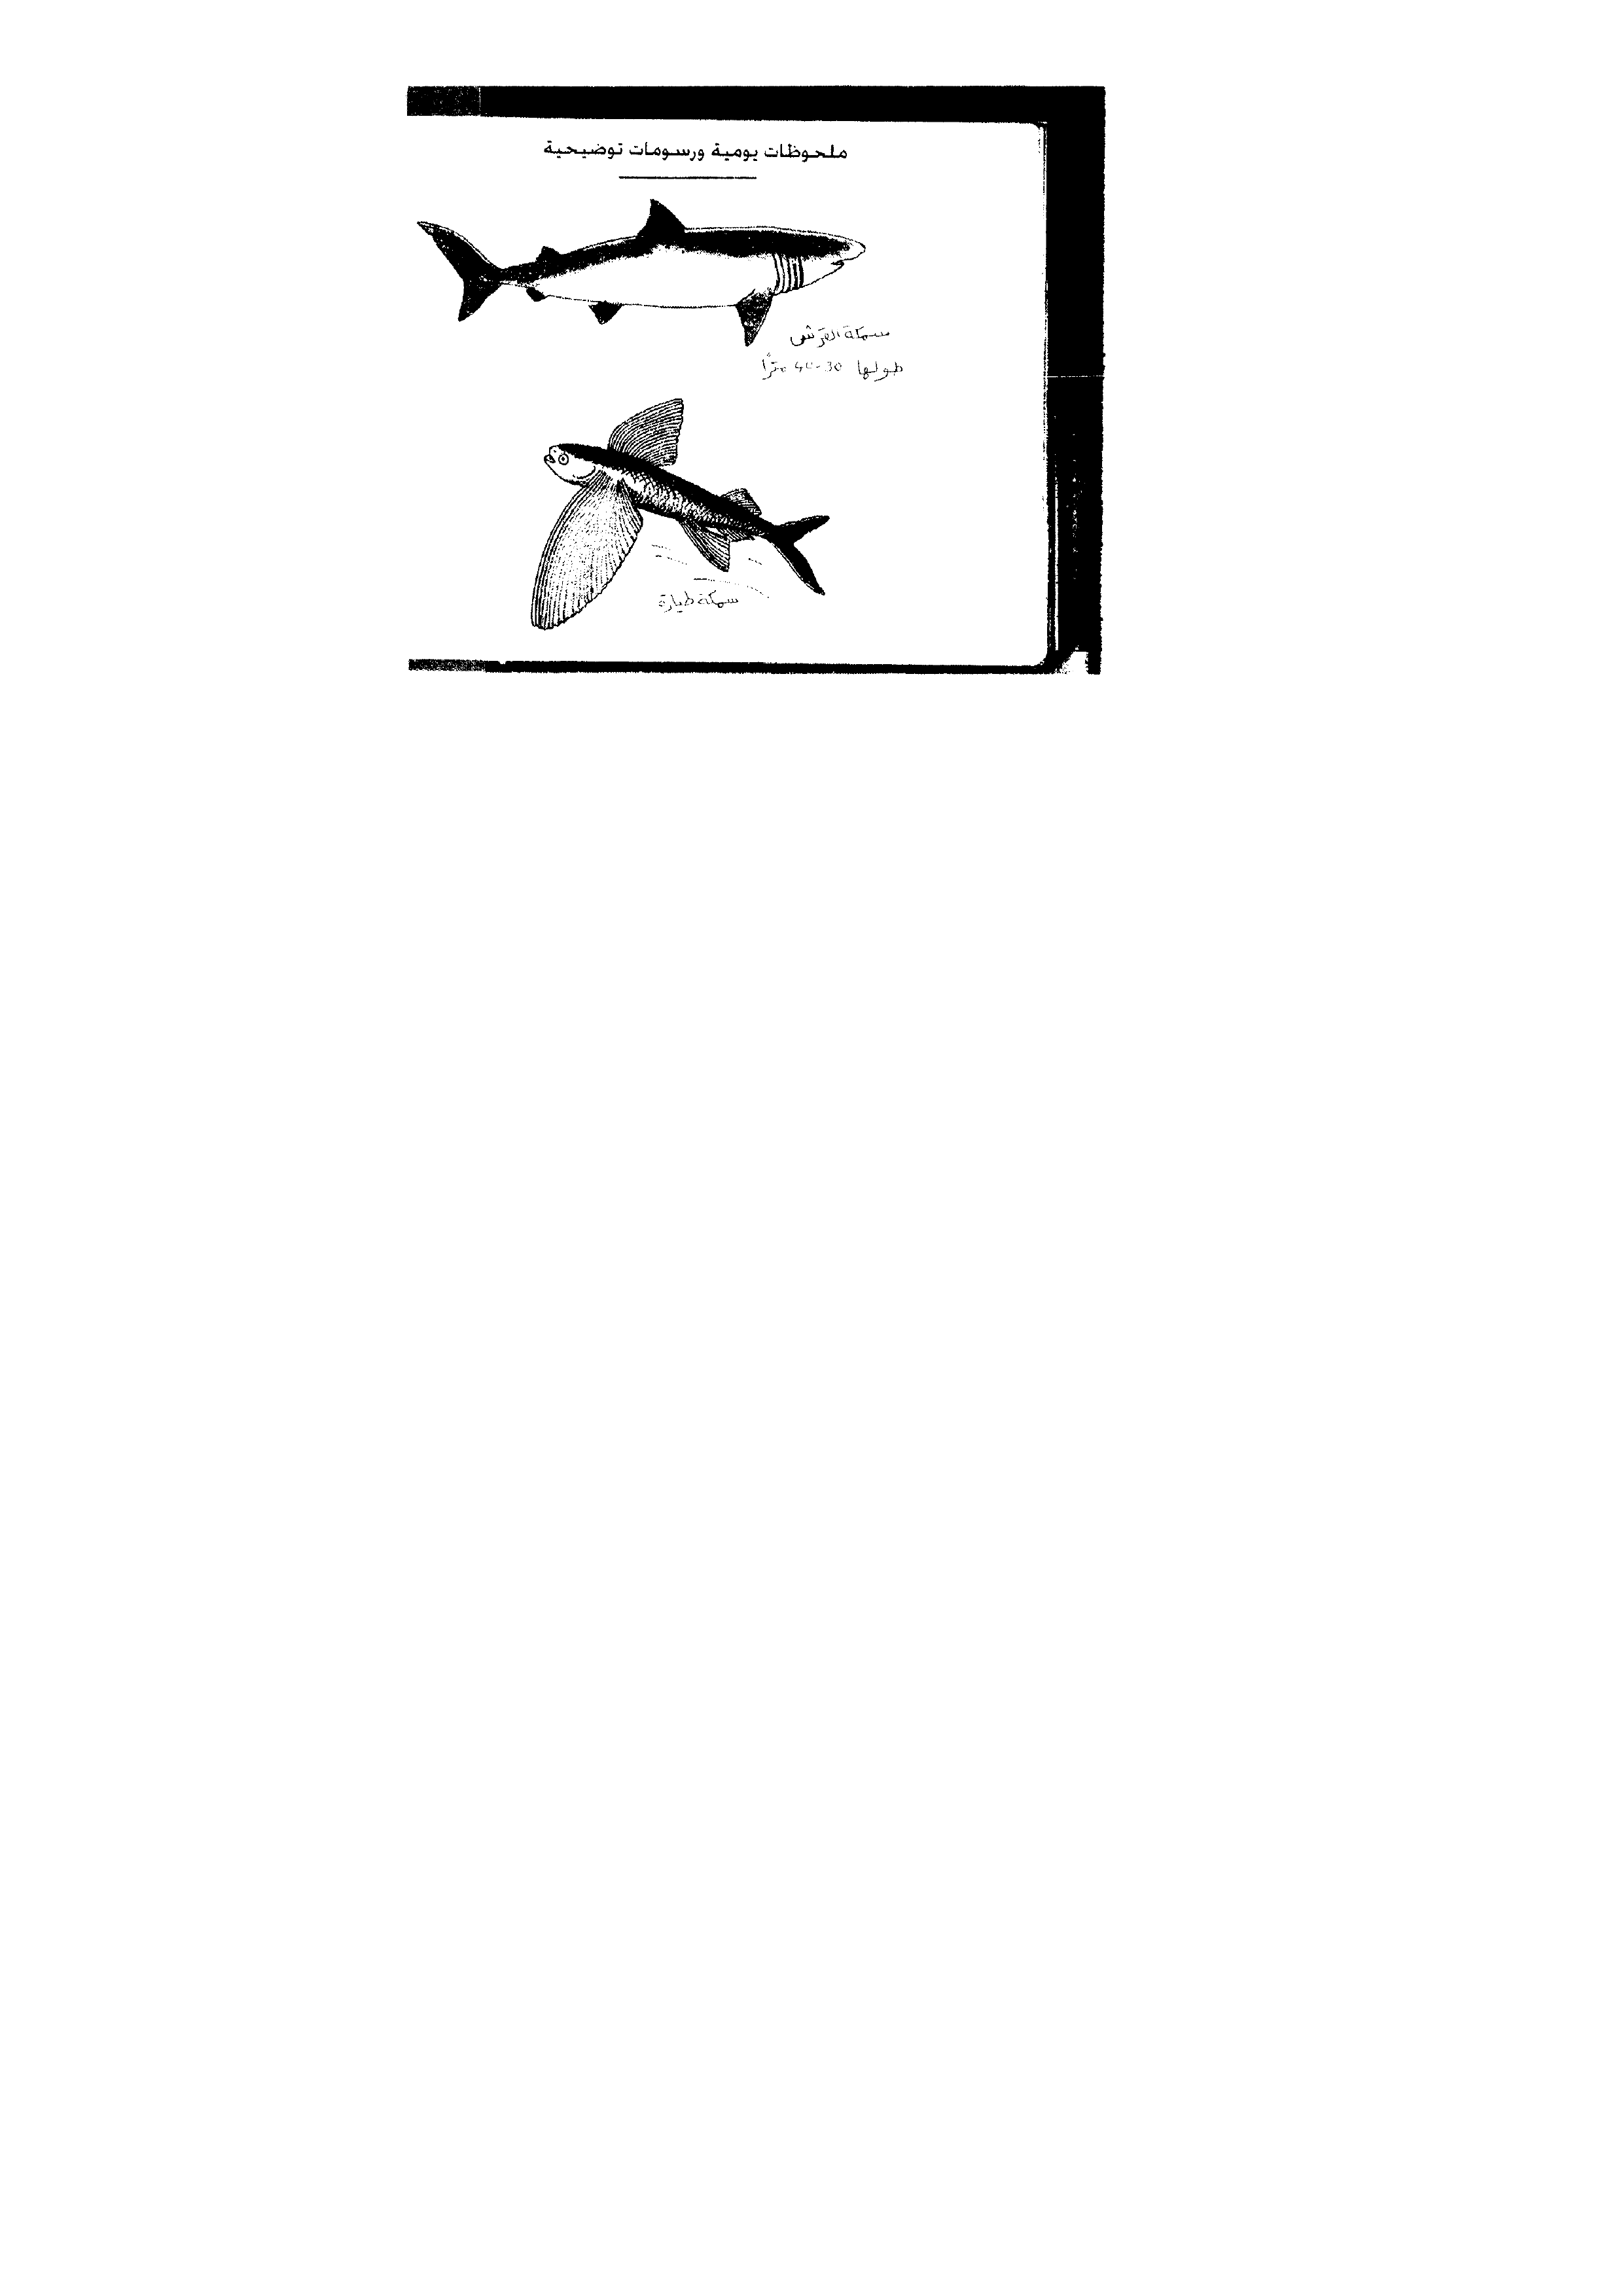 ملحوظات يومية ورسومات توضيحية
سمكة القرش
طولها 30-40 مترًا
سمكة طيارة